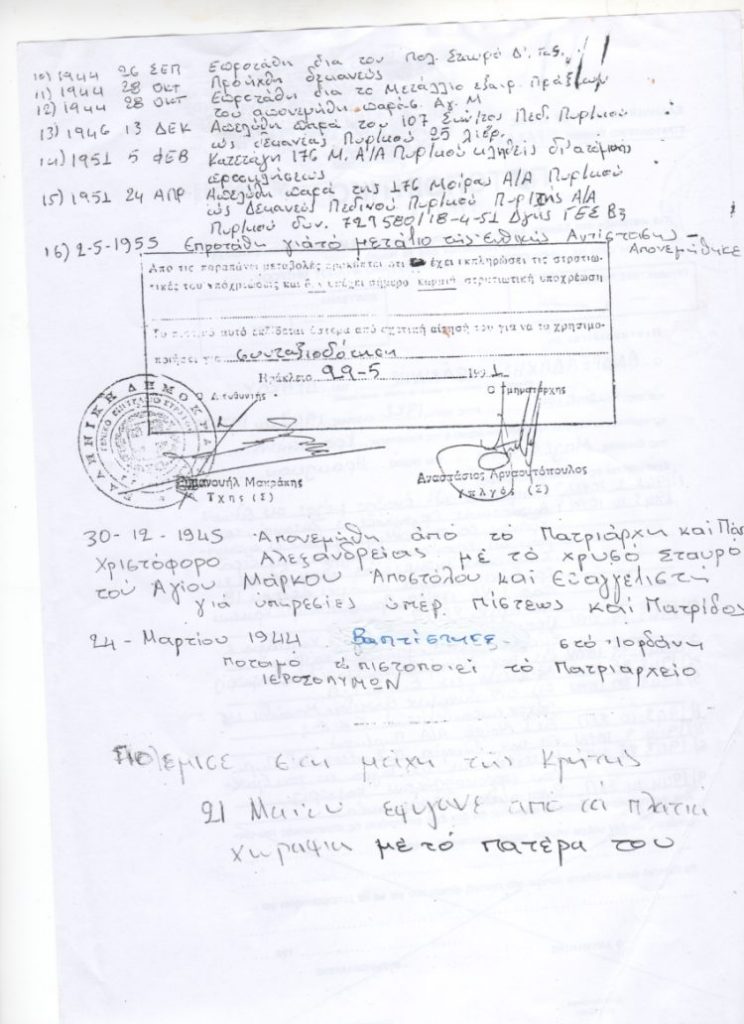 10) 1944 26 ΣΕΠ Επροτάθη δια τον Πολ. Σταυρό Δ' Ταξ.
11) 1944 28 ΟΚΤ Προήχθη δεκανεύς
12) 1944 28 ΟΚΤ Επροτάθη δια το Μετάλλιο εξαιρ. Πράξεων
του απονεμήθη Αγ. Μ
13) 1946 13 ΔΕΚ Απελύθη παρά του 107 Συν/τος Πεδ. Πυρ/κού
ως δεκανέας Πυρ/κού 25 λιβρ.
14) 1951 5 ΦΕΒ Κατετάγη 176 Μ. Α/Α Πυρ/κού κληθείς δι' ατομικής
προσκλήσεως
15) 1951 24 ΑΠΡ Απελύθη παρά της 176 Μοίρας Α/Α Πυρ/κού
ώς Δεκανεύς Πεδινού Πυρ/κού Πυρ/τής Α/Α
Πυρ/κού δυν. 727580/18-4-51 Δ/γής ΓΕΣ Β3
16) 2-5-1955 Επροτάθη γιά τό μετάλιο τής Εθνικής Αντίστασης -
Απονεμήθηκε
Από τις παραπάνω μεταβολές προκύπτει ότι έχει εκπληρώσει τις στρατιω-
τικές του υποχρεώσεις και δεν υπέχει σήμερα καμμιά στρατιωτική υποχρέωση
Το πιστ/κό αυτό εκδίδεται ύστερα από σχετική αίτησή του για να το χρησιμο-
ποιήσει για συνταξιοδότηση
Ηράκλειο 22-5 1991
Ο Διευθυντής Ο Τμηματάρχης
ΕΛΛΗΝΙΚΗ ΔΗΜΟΚΡΑΤΙΑ
Εμμανουήλ Μακράκης
Τχης (Σ)
Αναστάσιος Αρναουτόπουλος
Υπλγός (Σ)
30-12-1945 Απονεμήθη από τό Πατριάρχη καί Πάπ
Χριστόφορο Αλεξανδρείας μέ τό χρυσό Σταυρό
τού Άγίου Μάρκου Άποστόλου καί Εύαγγελιστή
γιά ύπηρεσίες ύπέρ Πίστεως καί Πατρίδος
24 - Μαρτίου 1944 Βαπτίστηκε στό Ίορδάνη
ποταμό τό πιστοποιεί τό Πατριαρχείο
ΙΕΡΟΣΟΛΥΜΩΝ
Πολέμισε στη μάχη της Κρήτης
21 Μαΐου έφυγανε από τα πλατιά
χωράφια μέ τό πατέρα του